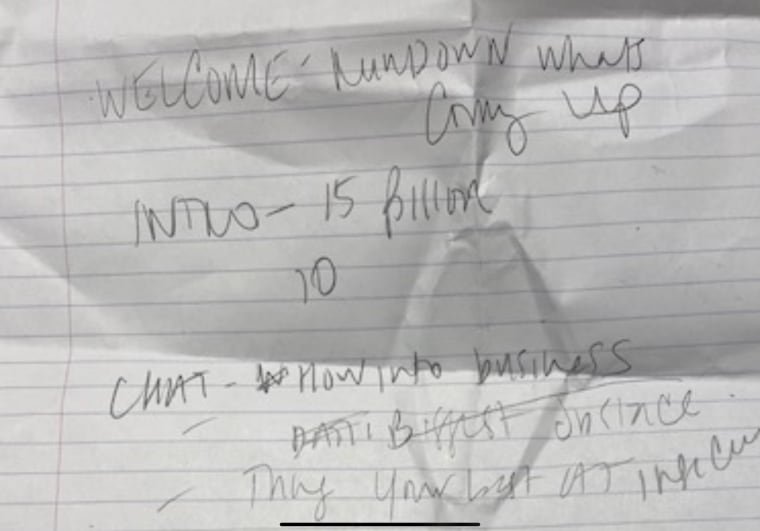 WELCOME - RUNDOWN whats
Coming Up
INTRO - 15 Billion
10
CHAT - How into business
- Biggest
- Thing your best AT